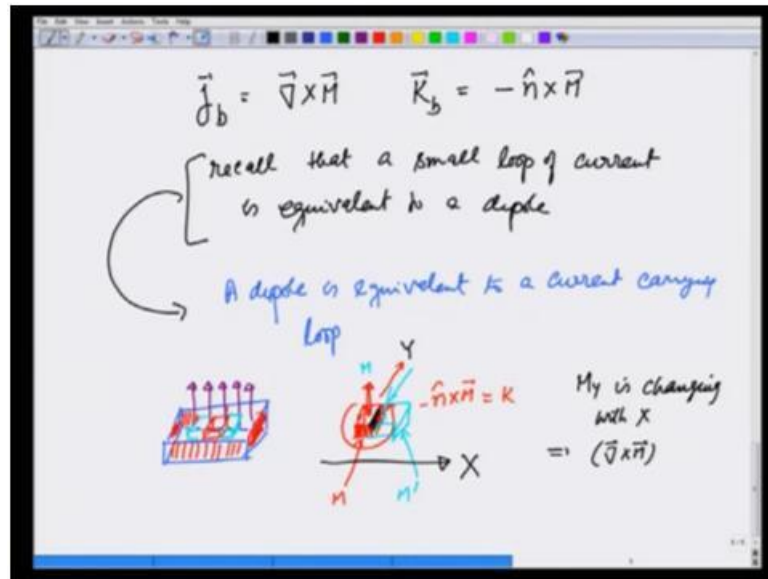 File Edit View Insert Actions Tools Help
j⃗_b = ∇⃗ x M⃗     K⃗_b = - n̂ x M⃗
recall that a small loop of current
is equivalent to a dipole
A dipole is equivalent to a current carrying
loop
M
Y
-n̂ x M⃗ = K
X
M
M'
My is changing
with X
=> (∇⃗ x M⃗)